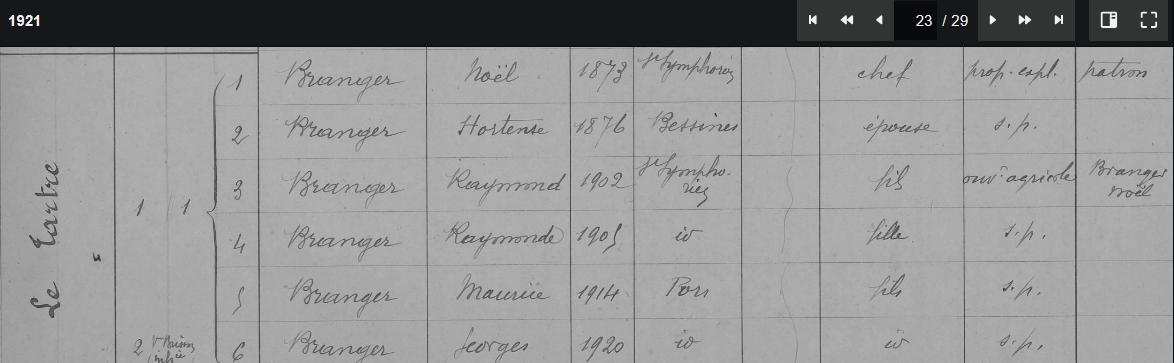 1921
23 / 29
Le Tartre
1 1
1 Branger Noël 1873 St Symphorien chef prop. expl. patron
2 Branger Hortense 1876 Bessines épouse s.p.
3 Branger Raymond 1902 St Sympho-
rien fils ouvr agricole Branger
Noël
4 Branger Raymonde 1905 id fille s.p.
5 Branger Maurice 1914 fils s.p.
2
6 Branger Georges 1920 id id s.p.